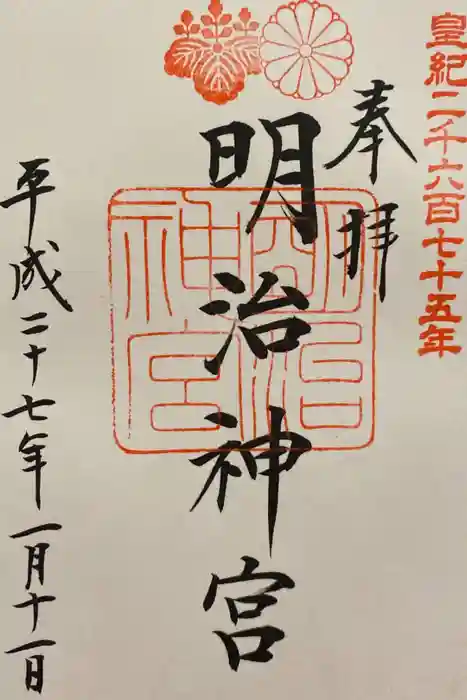 皇紀二千六百七十五年
奉拝
明治神宮
明治神宮
平成二十七年一月十一日